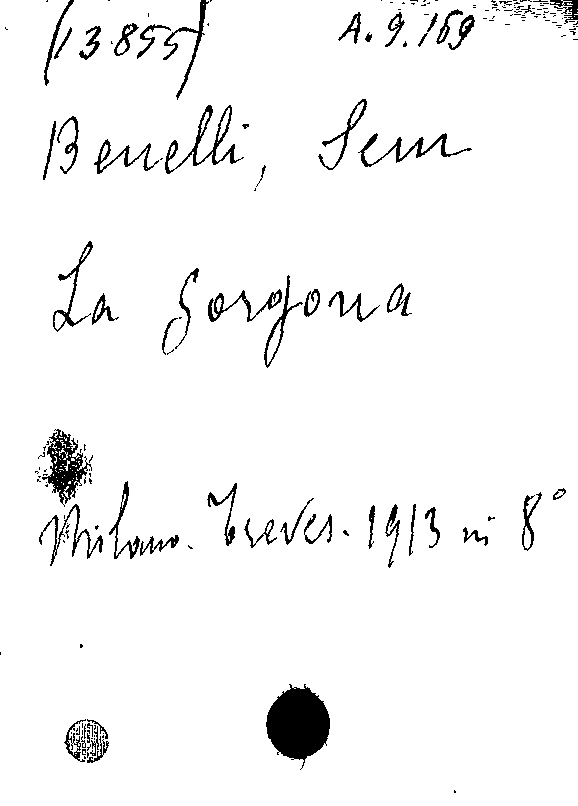 (13855) A.9.169
Benelli, Sem
La Gorgona
Milano. Treves. 1913 in 8°